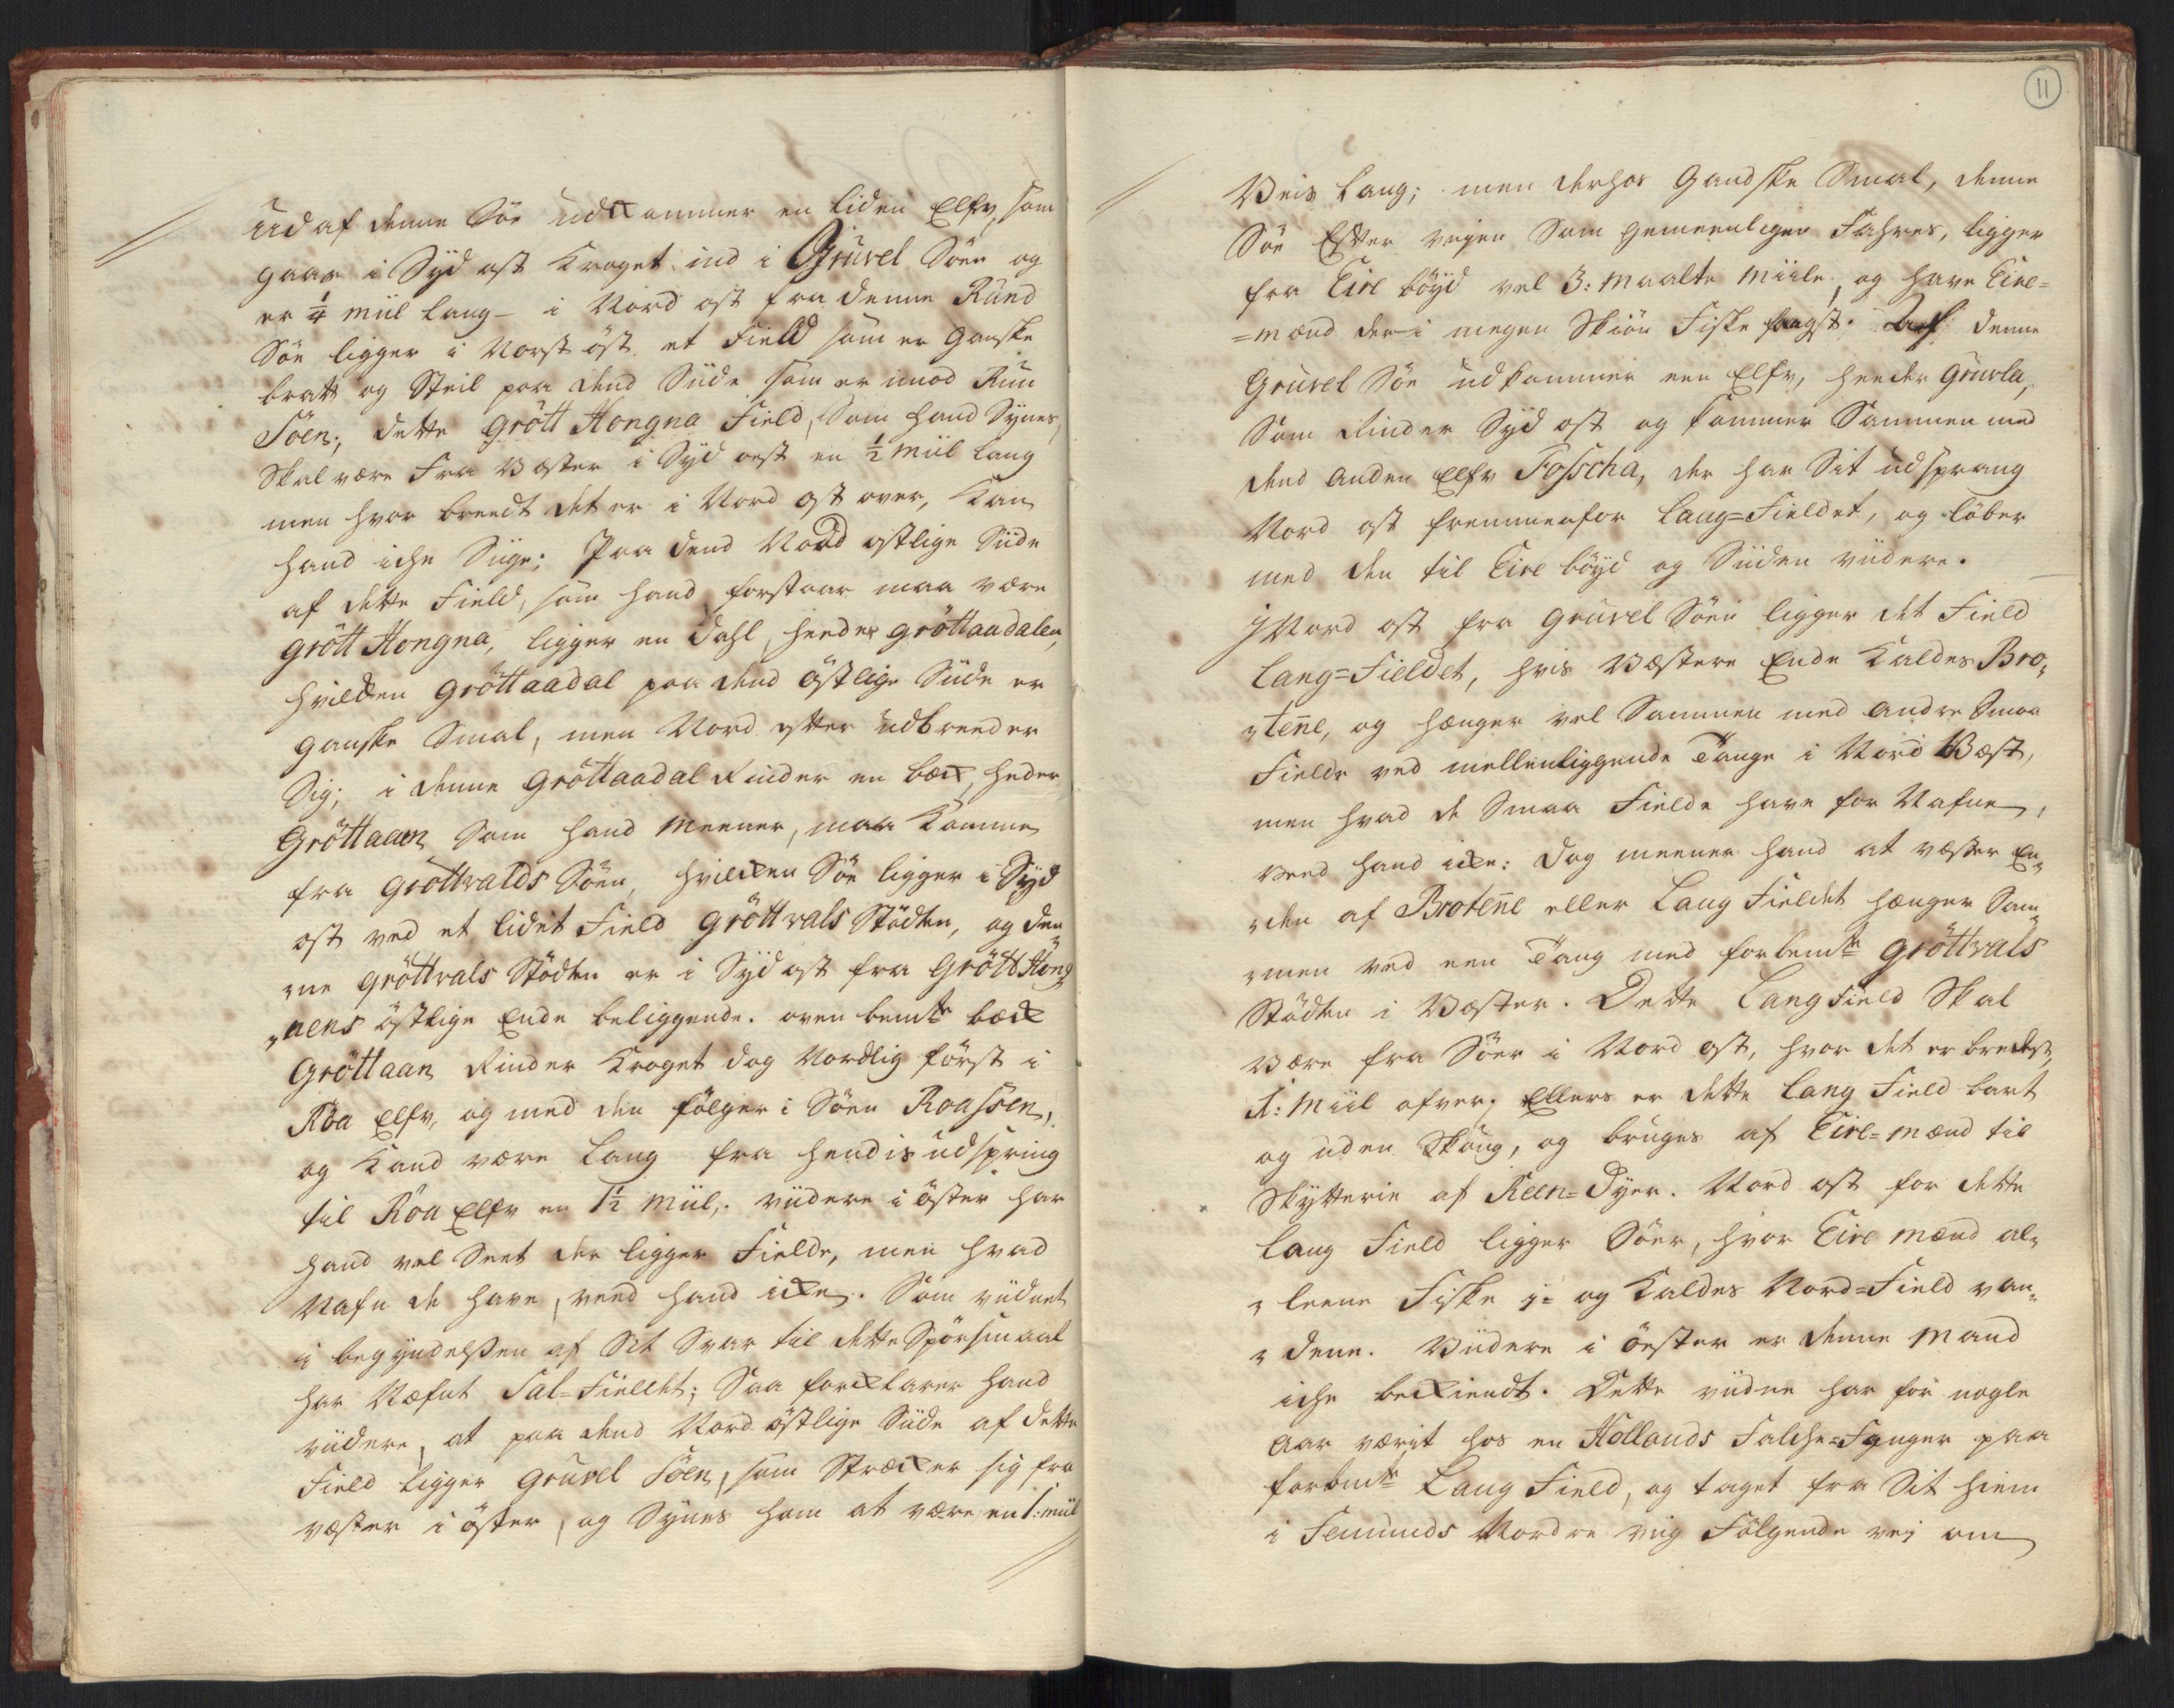 ud af denne Söe udkommer en liden Elfv, som
gaar i Syd ost kroget ind i Gruvel Söen og
er 1/4 miil lang – i Nord ost fra denne Rund
Söe ligger i Norst öst et Field som er ganske
bratt og Steil paa dend Siide som er imod Run
Söen; dette Grött Hongna Field, Som hand Synes,
Skal være Fra Væster i Syd oest en 1/2 miil lang
men hvor breedt det er i Nord ost over, kan
hand iche Siige; Paa dend Nord ostlige Siide
af dette Field, som hand forstaar maa være
Grött Hongna, ligger en Dahl, heeder Gröttaadalen,
hvilcken Gröttaadal paa dend östlige Siide er
ganske Smal, men Nord efter udbreeder
Sig; i denne Gröttaadal Rinder en bæck, heder
Gröttaaen Som hand meener, maa komme
fra Gröttvalds Söen, hvilcken Söe ligger i Syd
ost ved et lidet Field Gröttvals Stödten, og den„
„ne Gröttvals Stödten er i Syd ost fra Grött Hong„
„nens östlige Ende beliggende. oven bemte bæck
Gröttaan Rinder kroget dog Nordlig först i
Röa Elfv, og med den fölger i Söen Roasöen,
og kand være lang fra hendis udspring
til Röa Elfv en 1½ miil,. viidere i öster har
hand vel Seet der ligger Fielde, men hvad
Nafn de have, veed hand icke. Som viidnet
i begyndelsen af Sit Svar til dette Spörsmaal
har Næfnt Sal=Fieldet; Saa forcklarer hand
viidere, at paa dend Nord östlige Siide af dette
Field ligger Gruvel Söen, som Strecker sig fra
væster i öster, og Synes ham at være en 1: miil
11
Veis lang; men derhos gandske Smal, denne
Söe Efter vejen Som gemeenligen Fahres, ligger
fra Eire böyd vel 3: maalte miile, og have Eire=
=mænd der i megen Skiön Fiske fangst. Af denne
Gruvel Söe udkommer een Elfv, heeder Gruvla,
Som Rinder Syd ost og kommer Sammen med
dend anden Elfv Foscha, der har Sit udsprang
Nord ost fremmenfor Lang=Fieldet, og löber
med den til Eire böyd og Siiden viidere.
J Nord ost fra Gruvel Söen ligger det Field
Lang=Fieldet, hvis Væstere Ende kaldes Bro„
„tene, og hænger vel Sammen med andre Smaa
Fielde ved mellenliggende Tange i Nord Væst,
men hvad de Smaa Fielde have for Nafne,
veed hand icke: dog meener hand at væster En„
„den af Brotene eller Lang Fieldet hænger Sam„
„men ved een Tang med forbemte Gröttvals
Stödten i Væster. Dette Langfield Skal
være fra Söer i Nord ost, hvor det er bredest,
1: Miil ofver; Ellers er dette lang Field bart
og uden Skoug, og bruges af Eire=mænd til
Skytterie af Reen=Dyer. Nord ost for dette
lang Field ligger Söer, hvor Eire mænd al„
„leene Fiske i= og kaldes Nord=Field van„
„dene. Viidere i öester er denne mand
iche beckiendt. Dette viidne har for nogle
aar været hos en Hollands Falche=Fanger paa
forbmte Lang Field, og taget fra Sit hiem
i Femunds Nordre viig Fölgende vej om